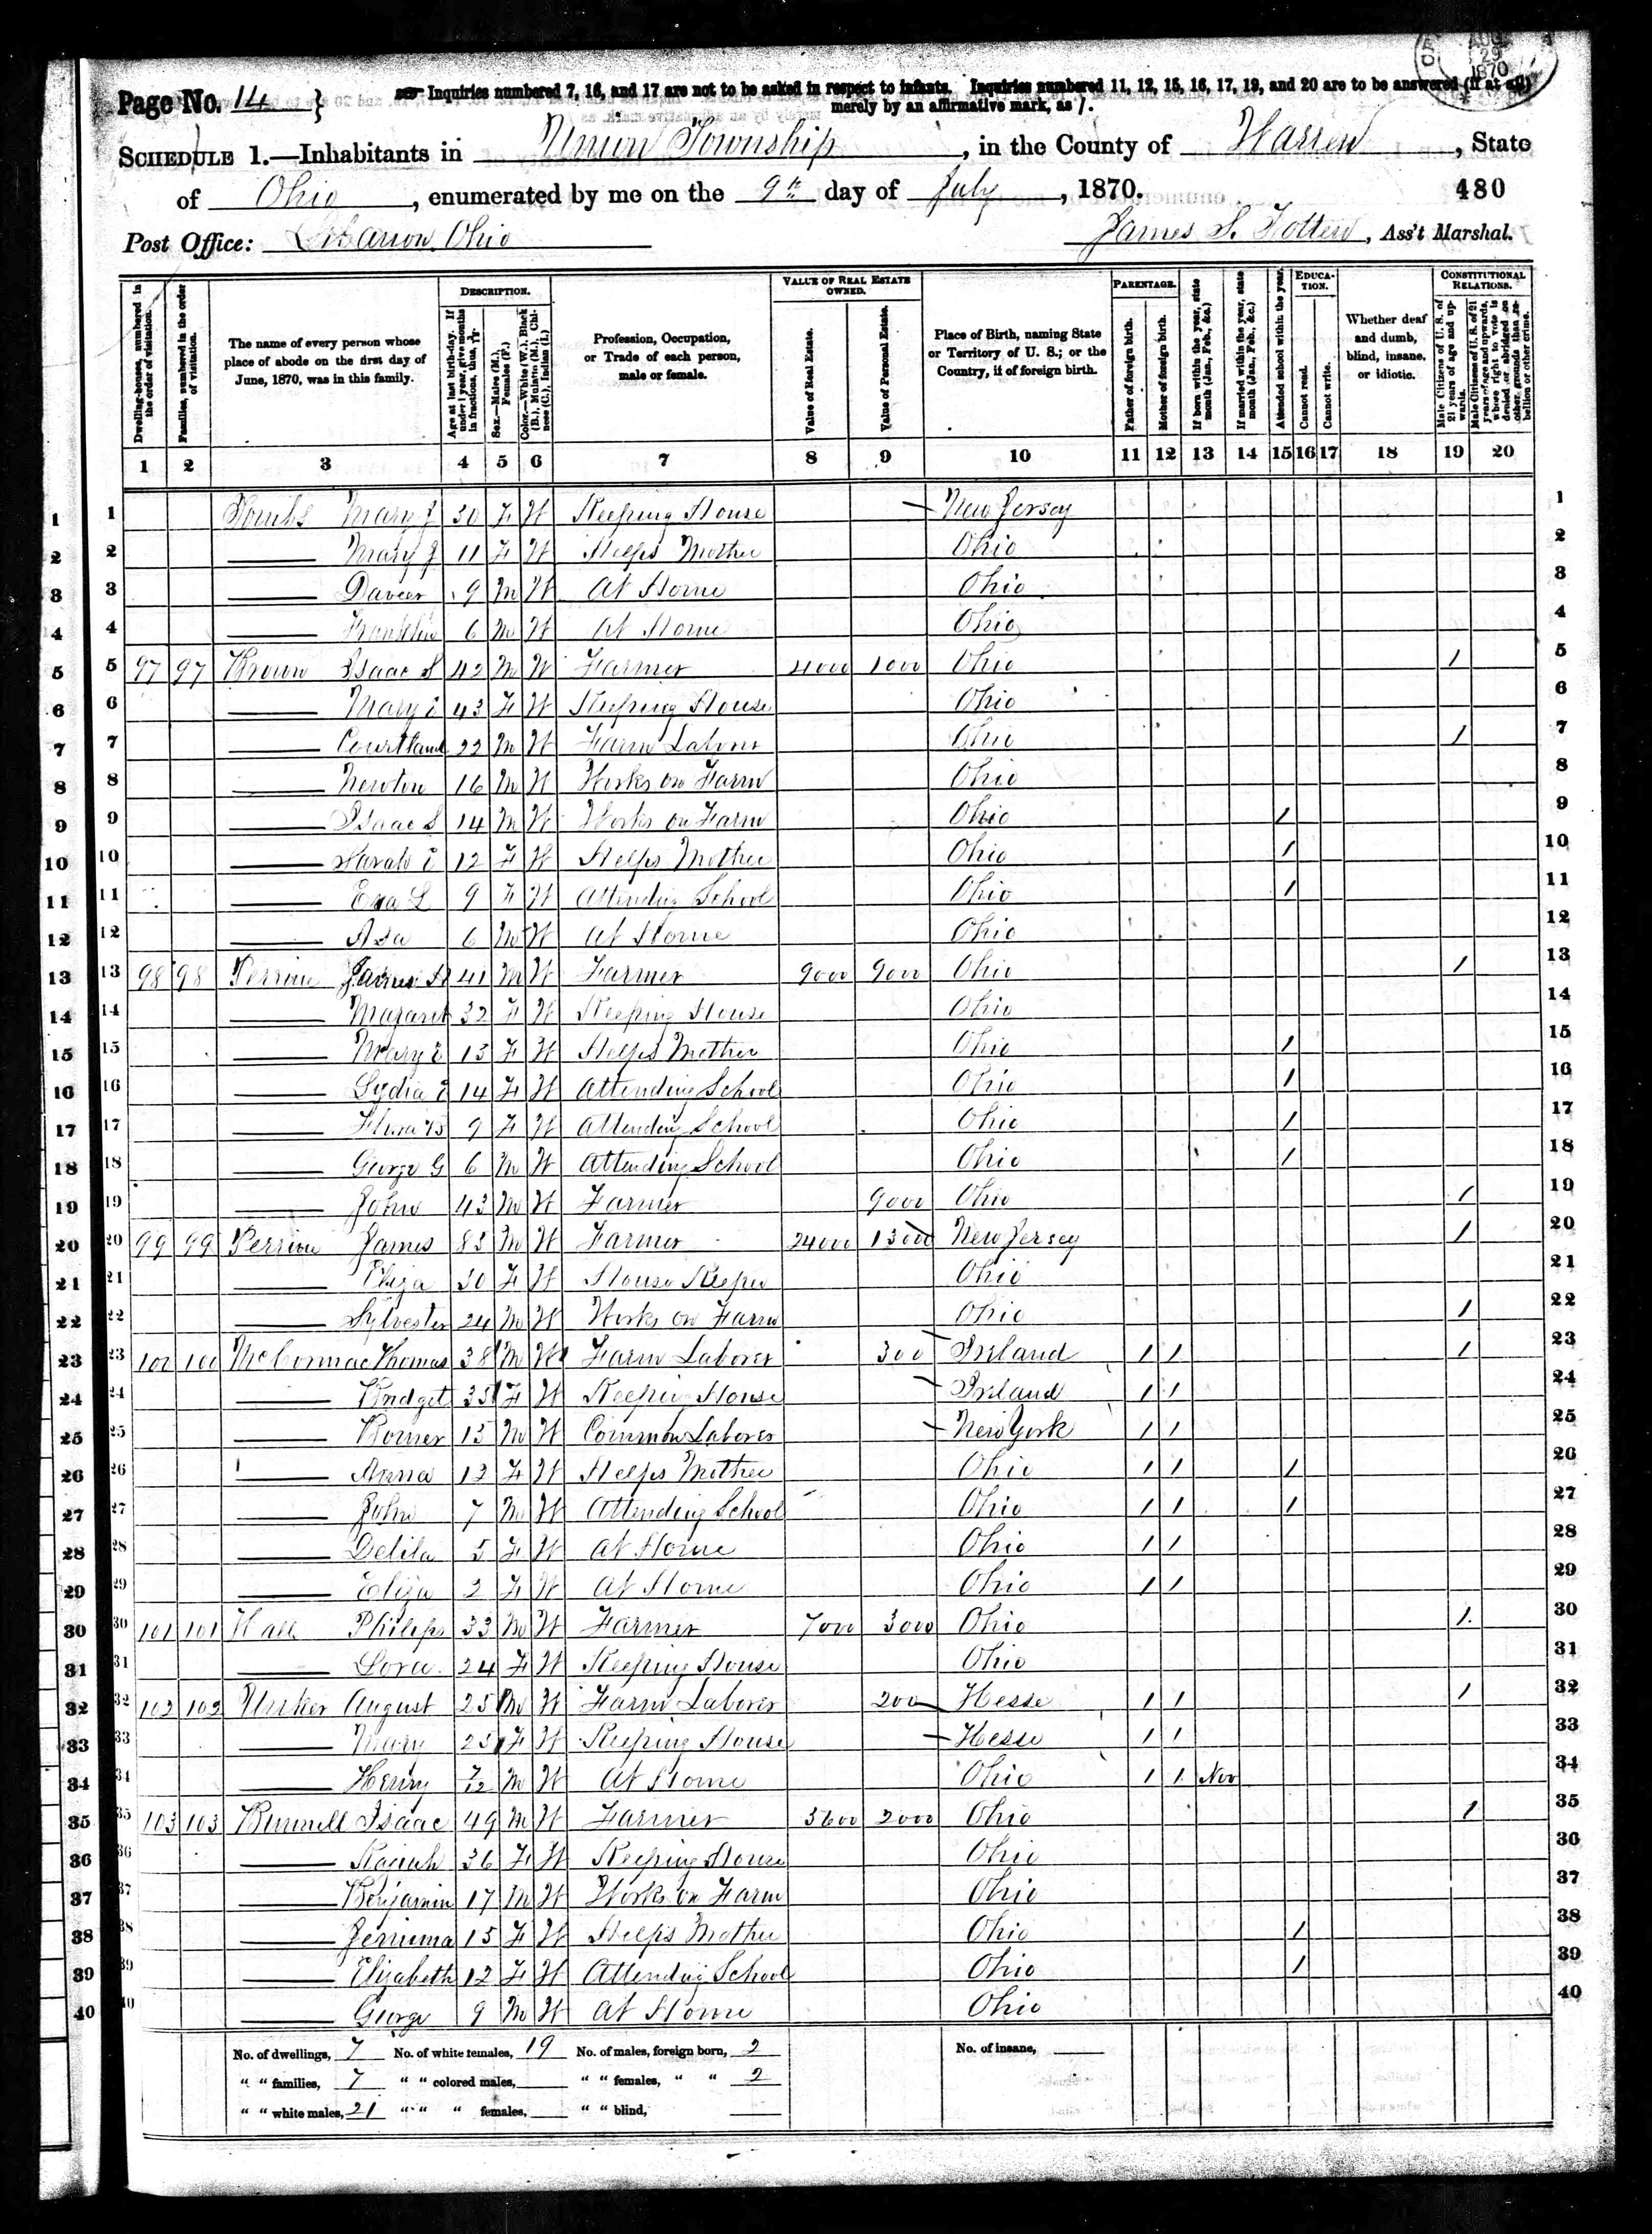 AUG 29 1870
Page No. 14 }
Inquiries numbered 7, 16, and 17 are not to be asked in respect to infants. Inquiries numbered 11, 12, 15, 16, 17, 19, and 20 are to be answered (if at all)
merely by an affirmative mark, as /.
SCHEDULE 1.—Inhabitants in Union Township, in the County of Warren, State
of Ohio, enumerated by me on the 9th day of July, 1870. 480
Post Office: Lebanon Ohio James S. Totten, Ass't Marshal.
Dwelling-houses, numbered in the order of visitation.
Families, numbered in the order of visitation.
The name of every person whose place of abode on the first day of June, 1870, was in this family.
DESCRIPTION.
Age at last birth-day. If under 1 year, give months in fractions, thus,
Sex.—Males (M.), Females (F.)
Color.—White (W.), Black (B.), Mulatto (M.), Chinese (C.), Indian (I.)
Profession, Occupation, or Trade of each person, male or female.
VALUE OF REAL ESTATE OWNED.
Value of Real Estate.
Value of Personal Estate.
Place of Birth, naming State or Territory of U. S.; or the Country, if of foreign birth.
PARENTAGE.
Father of foreign birth.
Mother of foreign birth.
If born within the year, state month (Jan., Feb., &c.)
If married within the year, state month (Jan., Feb., &c.)
Attended school within the year.
EDUCATION.
Cannot read.
Cannot write.
Whether deaf and dumb, blind, insane, or idiotic.
CONSTITUTIONAL RELATIONS.
Male Citizens of U. S. of 21 years of age and upwards.
Male Citizens of U. S. of 21 years of age and upwards, whose right to vote is denied or abridged on other grounds than rebellion or other crime.
1 2 3 4 5 6 7 8 9 10 11 12 13 14 15 16 17 18 19 20
1 1 Tombs Mary J 30 F W Keeping House New Jersey 1
2 2 —— Mary J 11 F W Helps Mother Ohio 2
3 3 —— 9 M W At Home Ohio 3
4 4 —— Franklin 6 M W At Home Ohio 4
5 5 97 97 Brown Isaac S 42 M W Farmer 4000 1000 Ohio 1 5
6 6 —— Mary E 43 F W Keeping House Ohio 6
7 7 —— Courtland 22 M W Farm Laborer Ohio 1 7
8 8 —— Newton 16 M W Works on Farm Ohio 8
9 9 —— Isaac S 14 M W Works on Farm Ohio 1 9
10 10 —— Sarah E 12 F W Helps Mother Ohio 1 10
11 11 —— L 9 F W Attending School Ohio 1 11
12 12 —— Asa 6 M W At Home Ohio 12
13 13 98 98 Perrine James H 41 M W Farmer 9000 9000 Ohio 1 13
14 14 —— Margaret 32 F W Keeping House Ohio 14
15 15 —— Mary E 15 F W Helps Mother Ohio 1 15
16 16 —— Lydia E 14 F W Attending School Ohio 1 16
17 17 —— Flora B 9 F W Attending School Ohio 1 17
18 18 —— George G 6 M W Attending School Ohio 1 18
19 19 —— John 43 M W Farmer 9000 Ohio 1 19
20 20 99 99 Perrine James 83 M W Farmer 24000 13000 New Jersey 1 20
21 21 —— Eliza 50 F W House Keeper Ohio 21
22 22 —— Sylvester 24 M W Works on Farm Ohio 1 22
23 23 100 100 McCormac Thomas 38 M W Farm Laborer 300 Ireland 1 1 1 23
24 24 —— Bridget 35 F W Keeping House Ireland 1 1 24
25 25 —— 15 M W Common Laborer New York 1 1 25
26 26 —— Anna 13 F W Helps Mother Ohio 1 1 1 26
27 27 —— John 7 M W Attending School Ohio 1 1 1 27
28 28 —— Delila 5 F W At Home Ohio 1 1 28
29 29 —— Eliza 2 F W At Home Ohio 1 1 29
30 30 101 101 Hall Philip 33 M W Farmer 7000 3000 Ohio 1 30
31 31 —— Lora 24 F W Keeping House Ohio 31
32 32 102 102 August 25 M W Farm Laborer 200 Hesse 1 1 1 32
33 33 —— Mary 25 F W Keeping House Hesse 1 1 33
34 34 —— Henry 7/12 M W At Home Ohio 1 1 Nov 34
35 35 103 103 Bunnell Isaac 49 M W Farmer 3600 2000 Ohio 1 35
36 36 —— 36 F W Keeping House Ohio 36
37 37 —— Benjamin 17 M W Works on Farm Ohio 37
38 38 —— Jemima 15 F W Helps Mother Ohio 1 38
39 39 —— Elizabeth 12 F W Attending School Ohio 1 39
40 40 —— George 9 M W At Home Ohio 40
No. of dwellings, 7 No. of white females, 19 No. of males, foreign born, 2 No. of insane,
" " families, 7 " " colored males, " " females, " " 2
" " white males, 21 " " " females, " " blind,